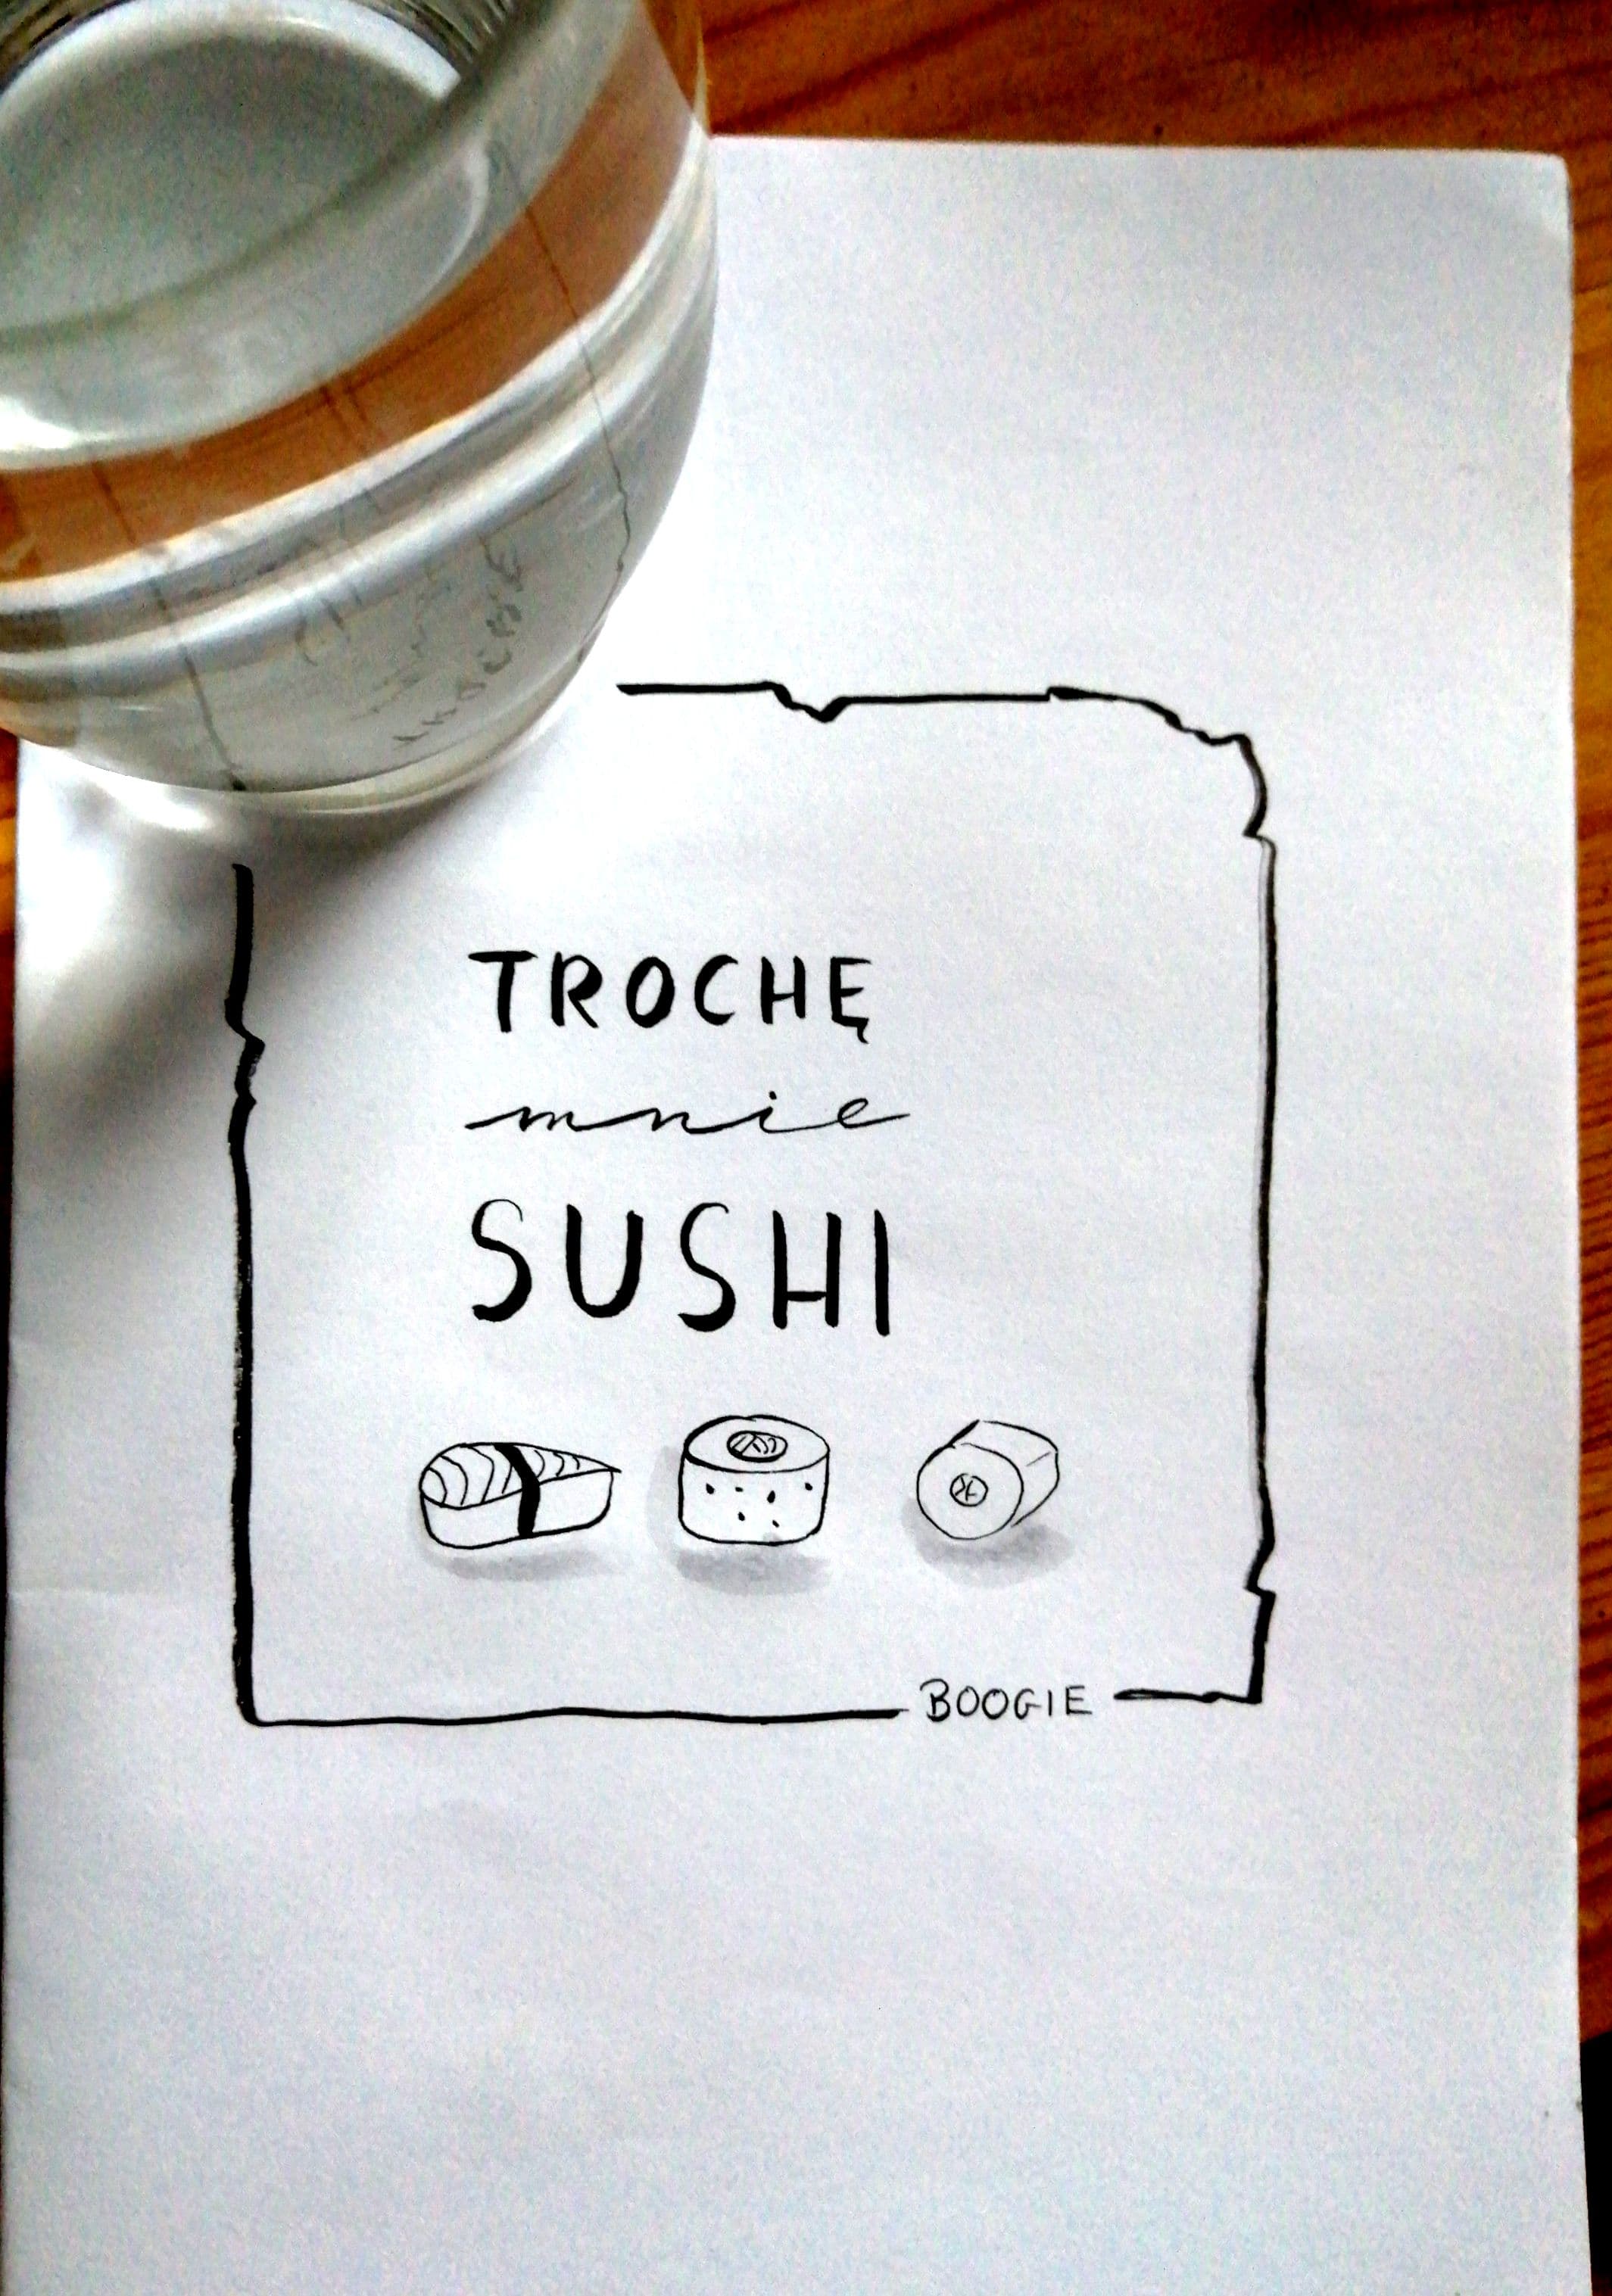 TROCHĘ
mnie
SUSHI
BOOGIE